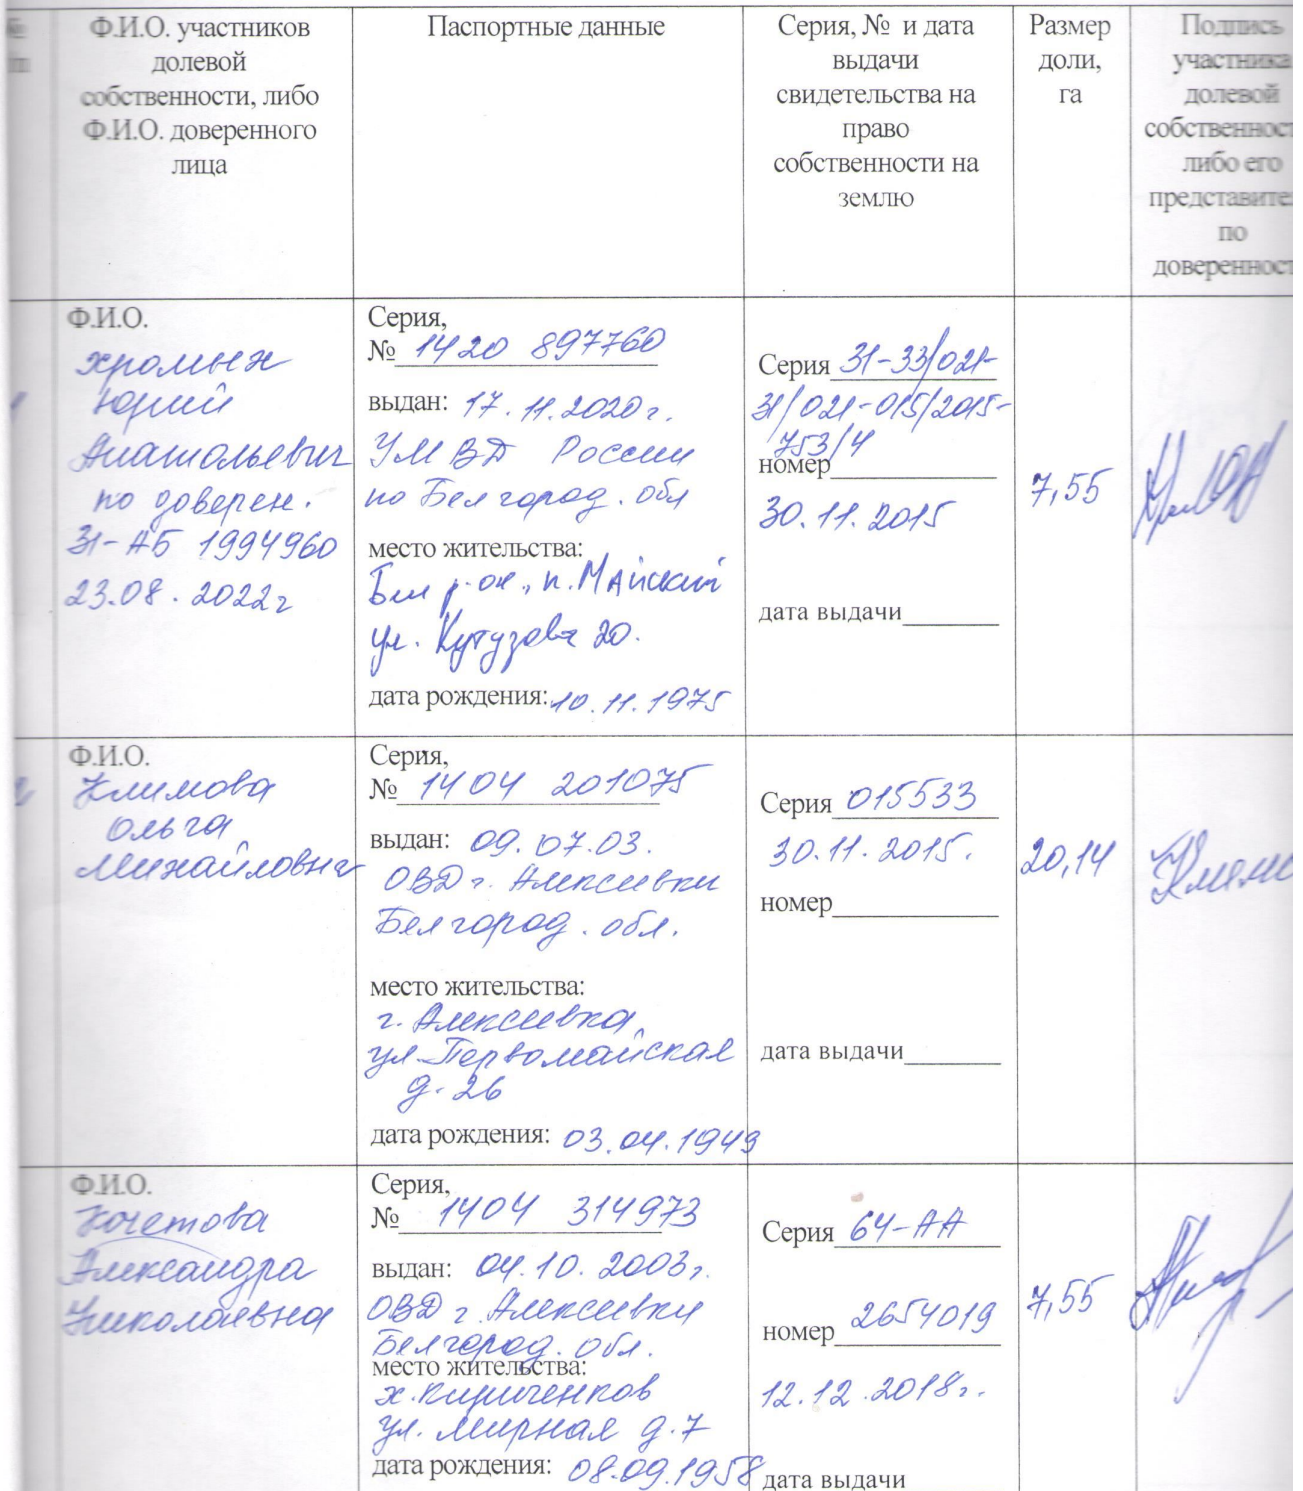 №
Ф.И.О. участников
долевой
собственности, либо
Ф.И.О. доверенного
лица
Паспортные данные
Серия, № и дата
выдачи
свидетельства на
право
собственности на
землю
Размер
доли,
га
Подпись
участника
долевой
собственност
либо его
представител
по
доверенност
Ф.И.О.
Хромых
Юрий
Анатольевич
по доверен.
31-АБ 1994960
23.08.2022г
Серия,
№ 1420 897760
выдан: 17.11.2020г.
УМВД России
по Белгород. обл
место жительства:
Бел р-он, п. Майский
ул. Кутузова 20.
дата рождения: 10.11.1975
Серия 31-33/021-
31/021-015/2015-
753/4
номер
30.11.2015
дата выдачи
7,55
Ф.И.О.
Климова
Ольга
Михайловна
Серия,
№ 1404 201075
выдан: 09.07.03.
ОВД г. Алексеевки
Белгород. обл.
место жительства:
г. Алексеевка,
ул. Первомайская
д. 26
дата рождения: 03.04.1949
Серия 015533
30.11.2015.
номер
дата выдачи
20,14
Ф.И.О.
Кочетова
Александра
Николаевна
Серия,
№ 1404 314973
выдан: 04.10.2003г.
ОВД г Алексеевки
Белгород. обл.
место жительства:
х. Кириченков
ул. Мирная д. 7
дата рождения: 08.09.1958
Серия 64-АА
номер 2654019
12.12.2018г.
дата выдачи
7,55